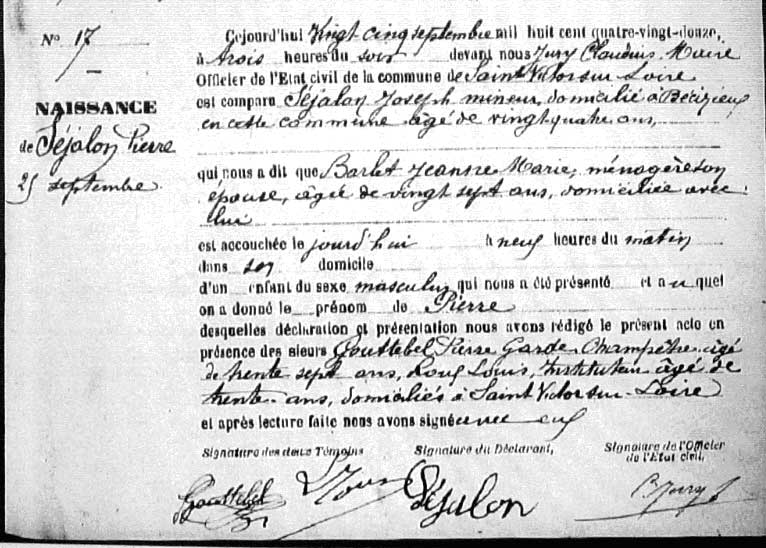 N° 17
NAISSANCE
de Séjalon Pierre
25 septembre
Cejourd'hui Vingt cinq septembre mil huit cent quatre-vingt-douze,
à trois heures du soir devant nous Jury Claudius, Maire
Officier de l'Etat civil de la commune de Saint Victor sur Loire
est comparu Séjalon Joseph mineur, domicilié à Bécizieux
en cette commune âgé de vingt quatre ans,
qui nous a dit que Barlet Jeanne Marie, ménagère son
épouse, âgée de vingt sept ans, domiciliée avec
lui
est accouchée le jourd'hui à neuf heures du matin
dans son domicile
d'un enfant du sexe masculin qui nous a été présenté et au quel
on a donné le prénom de Pierre
desquelles déclaration et présentation nous avons rédigé le présent acte en
présence des sieurs Gouttebel Pierre Garde-Champêtre âgé
de trente sept ans, Louis, Instituteur âgé de
trente ans, domiciliés à Saint Victor sur Loire
et après lecture faite nous avons signé avec eux
Signature des deux Témoins Signature du Déclarant, Signature de l'Officier
de l'Etat civil,
Gouttebel Séjalon Jury